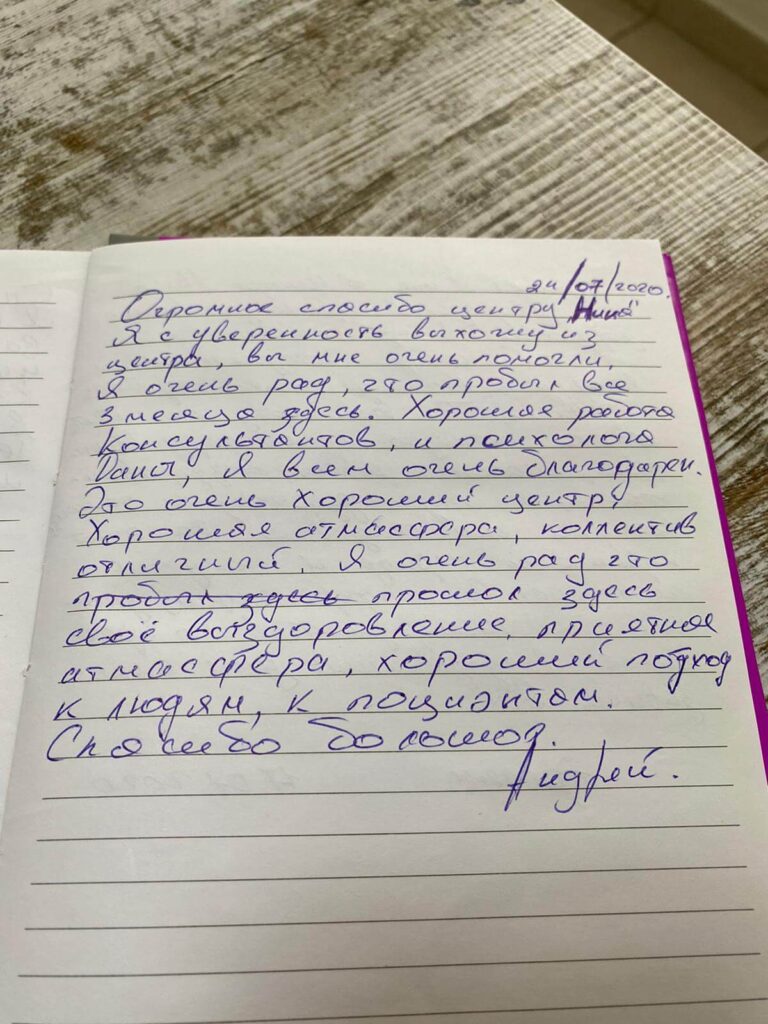 24/07/2020.
Огромное спасибо центру „Ника"
Я с уверенность выхожу из
центра, вы мне очень помогли.
Я очень рад, что пробыл все
3 месяца здесь. Хорошая работа
консультантов, и психолога
Я всем очень благодарен.
Это очень хороший центр,
Хорошая атмасфера, коллектив
отличный. Я очень рад что
пробыл здесь прошол здесь
своё выздоровление, приятная
атмасфера, хороший подход
к людям, к поциэнтам.
Спасибо большое.
Андрей.